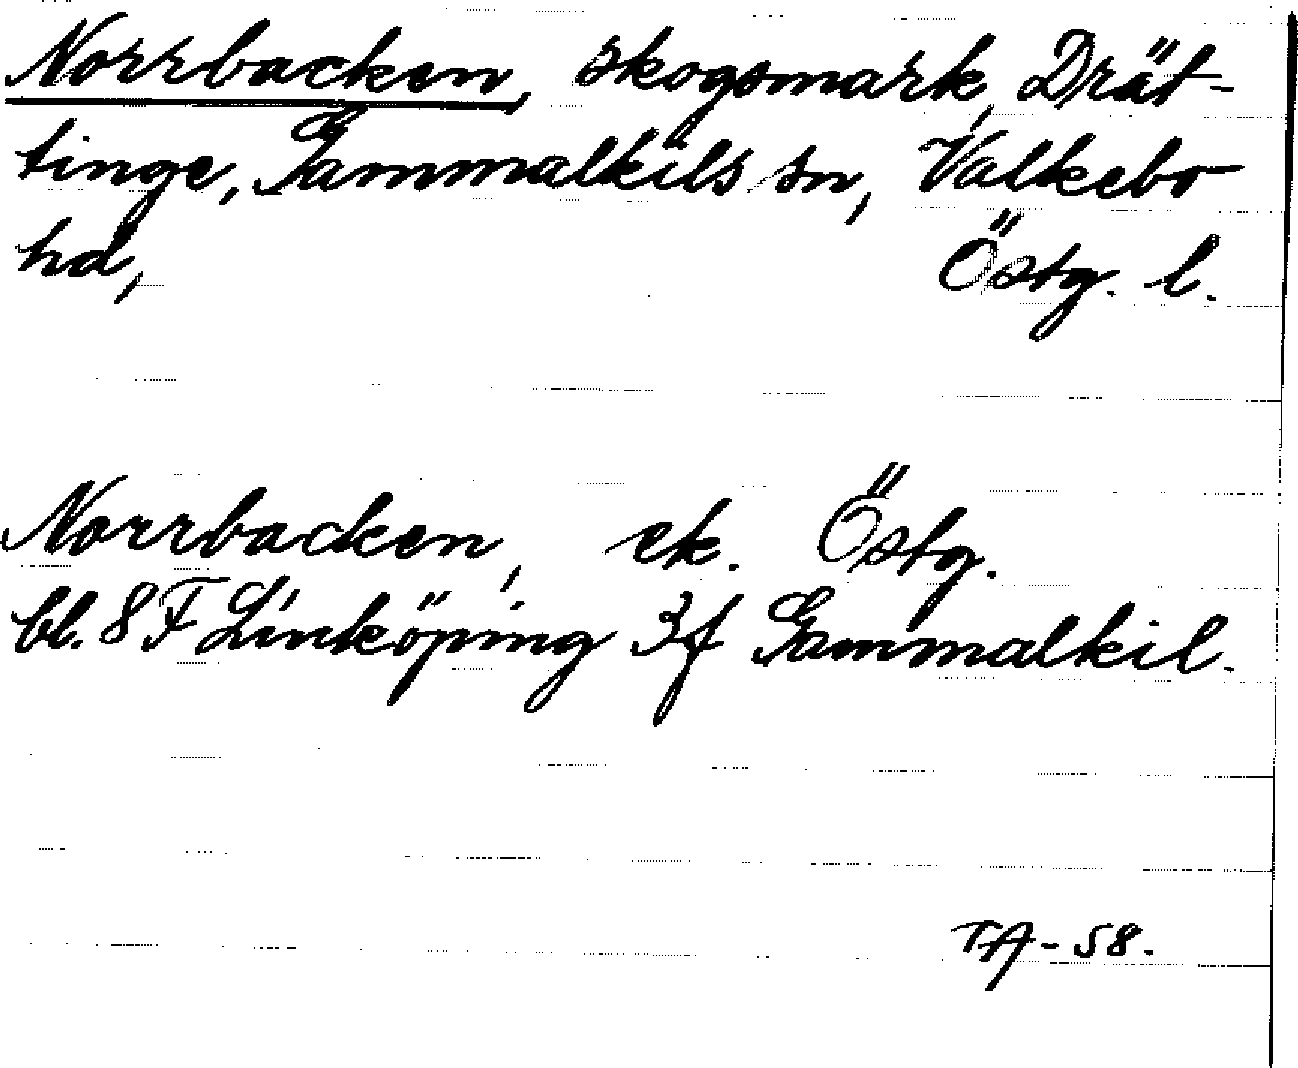 Norrbacken, skogsmark, Drät-
tinge, Gammalkils sn, Valkebo
hd, Östg. l.
Norrbacken, ek. Östg.
bl. 8F Linköping 3f Gammalkil.
TA-58.